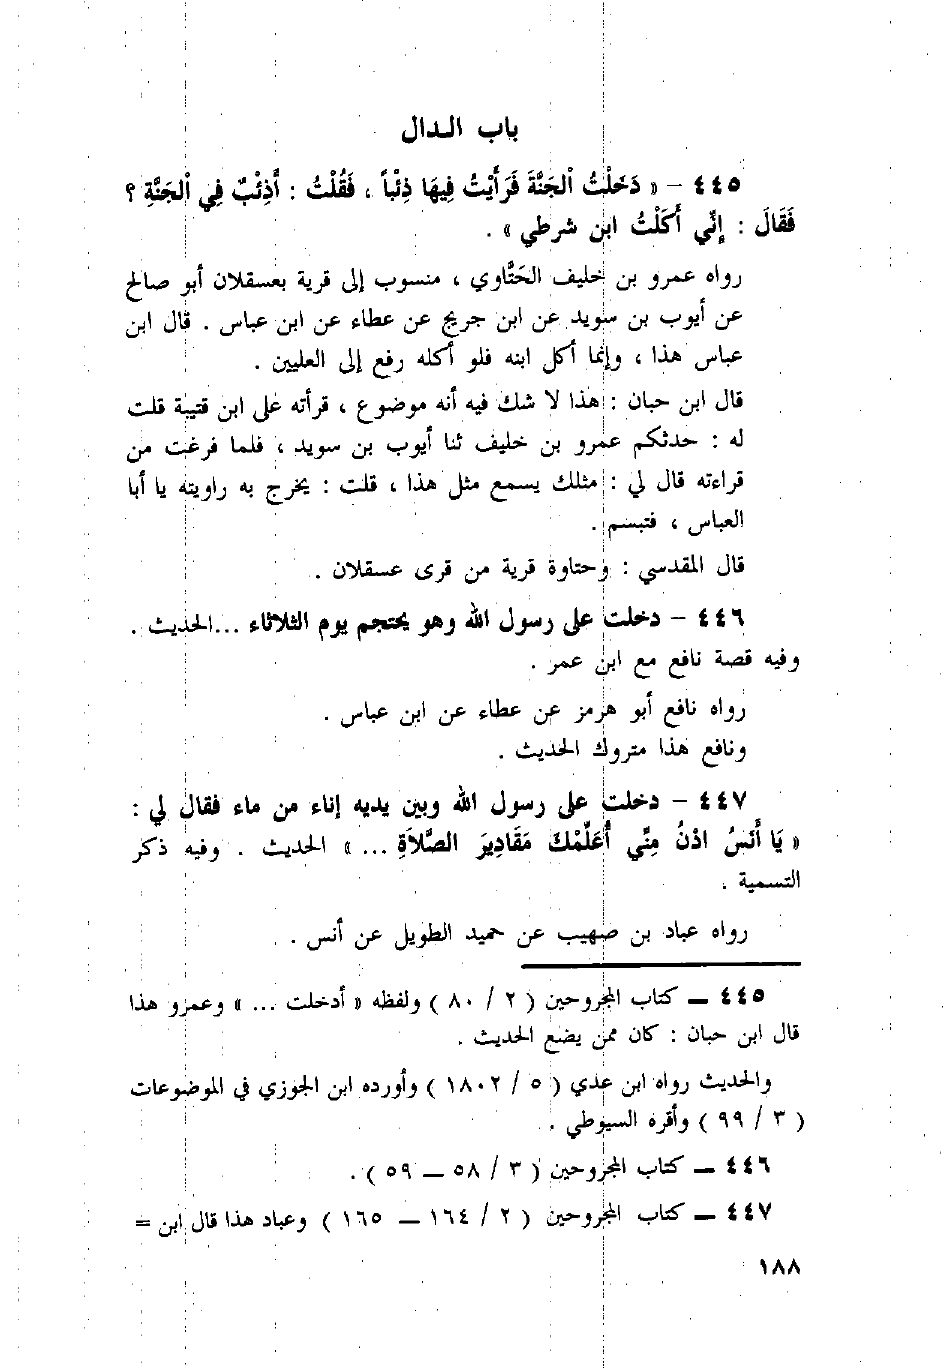 باب الدال
٤٤٥ – « دَخَلْتُ اْلجَنَّةَ فَرَأَيْتُ فِيهَا ذِئْباً ، فَقُلْتُ : أَذِئْبٌ فِي اْلجَنَّةِ ؟
فَقَالَ : إِنِّي أَكَلْتُ ابن شرطي » .
رواه عمرو بن خليف الحَتَّاوي ، منسوب إلى قرية بعسقلان أبو صالح
عن أيوب بن سويد عن ابن جريج عن عطاء عن ابن عباس . قال ابن
عباس هذا ، وإنما أكل ابنه فلو أكله رفع إلى العليين .
قال ابن حبان : هذا لا شك فيه أنه موضوع ، قرأته على ابن قتيبة قلت
له : حدثكم عمرو بن خليف ثنا أيوب بن سويد ، فلما فرغت من
قراءته قال لي : مثلك يسمع مثل هذا ، قلت : يخرج به راويته يا أبا
العباس ، فتبسم .
قال المقدسي : وحتاوة قرية من قرى عسقلان .
٤٤٦ – دخلت على رسول الله وهو يحتجم يوم الثلاثاء ...الحديث .
وفيه قصة نافع مع ابن عمر .
رواه نافع أبو هرمز عن عطاء عن ابن عباس .
ونافع هذا متروك الحديث .
٤٤٧ – دخلت على رسول الله وبين يديه إناء من ماء فقال لي :
« يَا أَنَسُ ادْنُ مِنِّي أُعَلِّمْكَ مَقَادِيرَ الصَّلاَةِ ... » الحديث . وفيه ذكر
التسمية .
رواه عباد بن صهيب عن حميد الطويل عن أنس .
٤٤٥ ــ كتاب المجروحين ( ٢ / ٨٠ ) ولفظه « أدخلت ... » وعمرو هذا
قال ابن حبان : كان ممن يضع الحديث .
والحديث رواه ابن عدي ( ٥ / ١٨٠٢ ) وأورده ابن الجوزي في الموضوعات
( ٣ / ٩٩ ) وأقره السيوطي .
٤٤٦ ــ كتاب المجروحين ( ٣ / ٥٨ ــ ٥٩ ) .
٤٤٧ ــ كتاب المجروحين ( ٢ / ١٦٤ ــ ١٦٥ ) وعباد هذا قال ابن =
١٨٨